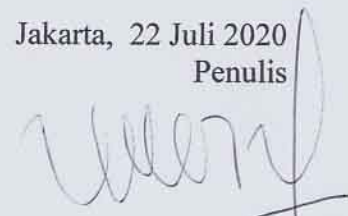 Jakarta, 22 Juli 2020
Penulis